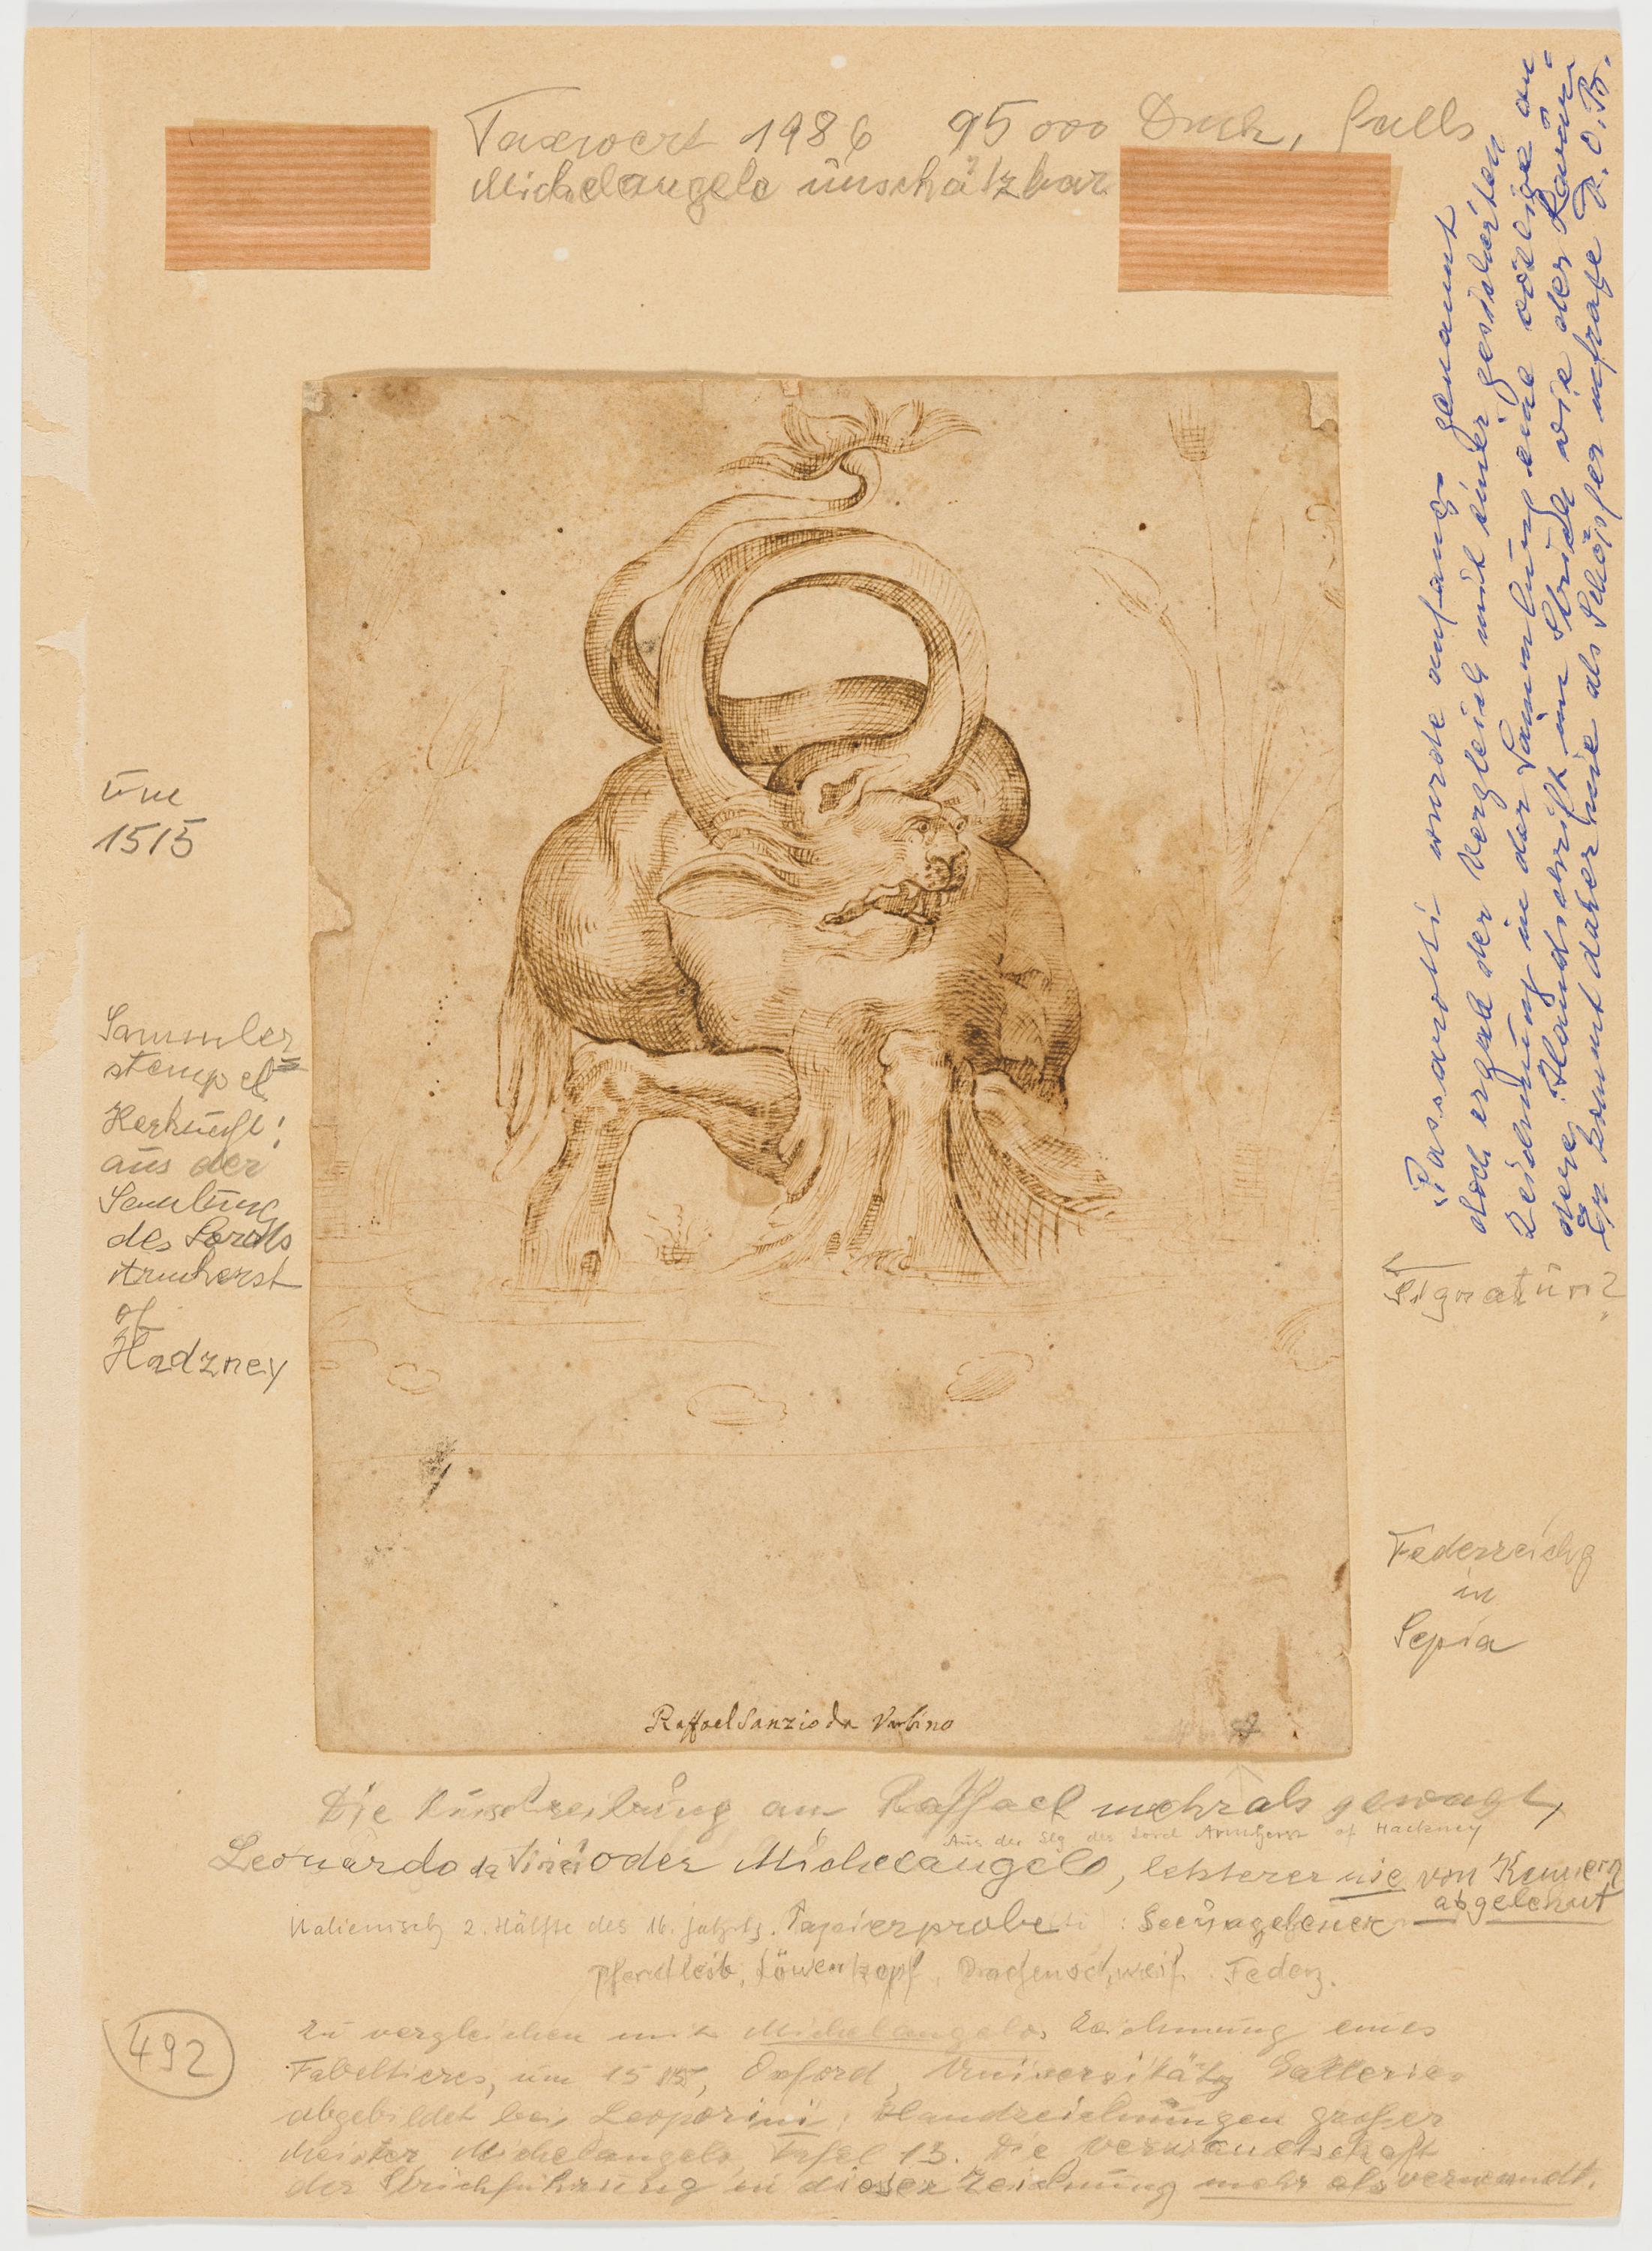 Taxwert 1986 95000 Dmk, falls
Michelangelo unschätzbar
um
1515
Sammler
stempel=
Herkunft!
aus der
Samlung
des Lords
Amherst
of
Hadzney
Passarotti wurde anfangs genannt
doch ergab der Vergleich mit einer gesicherten
Zeichnung in der Sammlung eine völlig an-
dere Handschrift im Strich wie der
Er kommt daher nie als Schöpfer infrage
Signatur?
Federzeichg
in
Sepia
Raffael Sanzio da Vrbino
Die Zuschreibung an Raffael mehr als gewagt,
Aus der Slg des Lord Amherst of Hackney
Leonardo da Vinci oder Michelangelo, letzterer nie von Kennern
abgelehnt
Italienisch 2. Hälfte des 16. Jahrhs. Papierprobe : Seeungeheuer
Pferdleib, Löwenkopf, Drachenschweif. Federz.
492
Zu vergleichen mit Michelangelos Zeichnung eines
Fabeltieres, um 15, Oxford, Universitäts Gallerie
abgebildet bei Leoporini: Handzeichnungen großer
Meister Michelangelo Tafel 13. Die Verwandtschaft
der Strichführung in dieser Zeichnung mehr als verwandt.